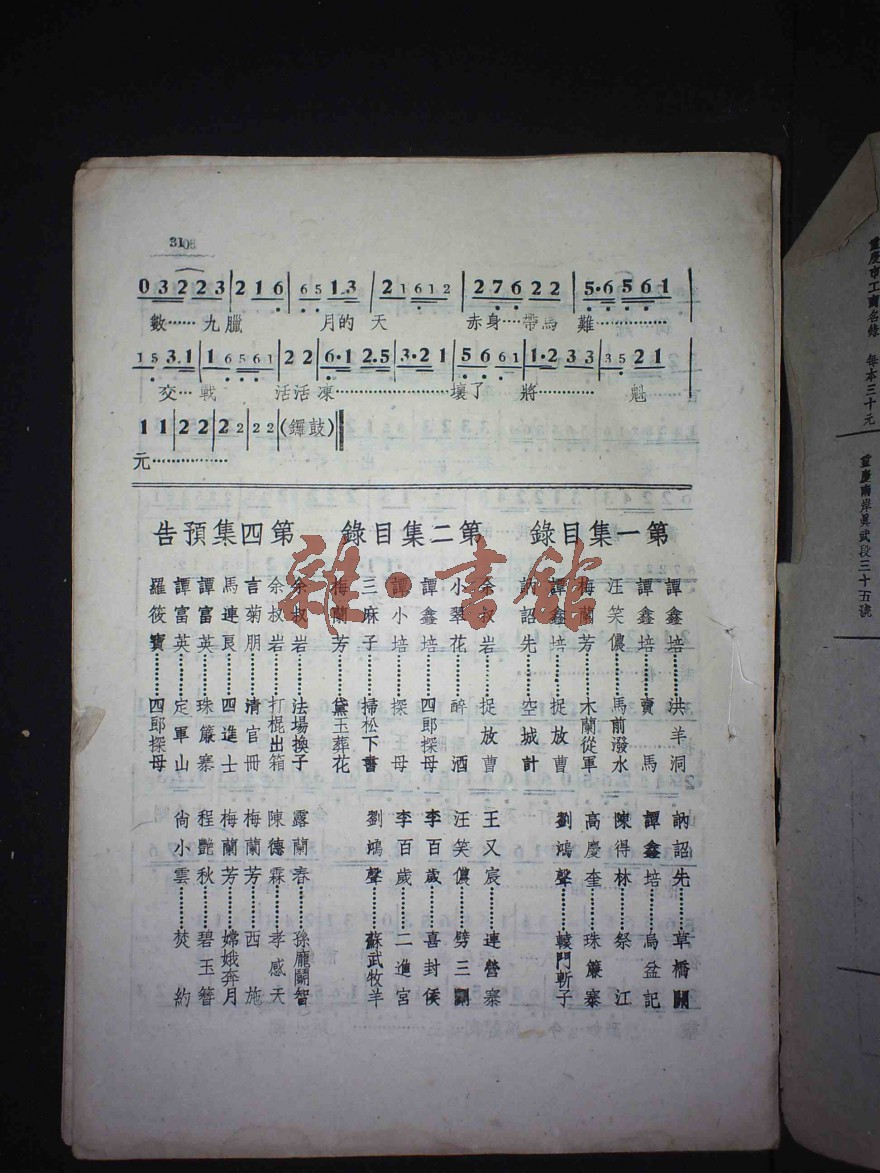 3108
0 3 2 2 3 | 2 1 6 | 6 5 1.3 | 2 1 6 1 2 | 2 7 6 2 2 | 5·6 5 6 1 |
數……九臘 月的天 赤身…帶馬 難…………
1 5 3.1 | 1 6 5 6 1 | 2 2 | 6·1 2.5 | 3·2 1 | 5 6 6 1 | 1·2 3 3 | 3 5 2 1 |
交…戰 活活凍………………壞了 將………… 魁
1 1 | 2 2 | 2 2 | 2 2 (鑼鼓)
元……………
第一集目錄
譚鑫培……洪羊洞
譚鑫培……賣馬
汪笑儂……馬前潑水
梅蘭芳……木蘭從軍
譚鑫培……捉放曹
訥詔先……空城計
訥詔先……草橋關
譚鑫培……烏盆記
陳得林……祭江
高慶奎……珠簾寨
劉鴻聲……轅門斬子
第二集目錄
余叔岩……捉放曹
小翠花……醉酒
譚鑫培……四郎探母
譚小培……探母
三麻子……掃松下書
梅蘭芳……黛玉葬花
王又宸……連營寨
汪笑儂……劈三關
李百歲……喜封侯
李百歲……二進宮
劉鴻聲……蘇武牧羊
第四集預告
余叔岩……法場換子
余叔岩……打棍出箱
言菊朋……清官冊
馬連良……四進士
譚富英……珠簾寨
譚富英……定軍山
羅筱寶……四郎探母
露蘭春……孫龐鬭智
陳德霖……孝感天
梅蘭芳……西施
梅蘭芳……嫦娥奔月
程艷秋……碧玉簪
尙小雲……焚約
雜·書館
重慶市工商名錄 每本三十元
重慶南岸眞武段三十五號